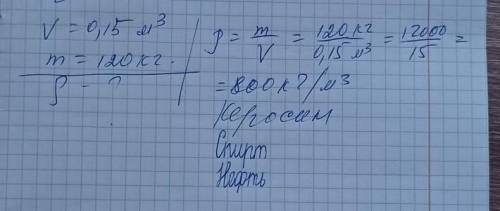 V = 0,15 м³
m = 120 кг.
ρ - ?
ρ = m/V = 120 кг/0,15 м³ = 12000/15 =
= 800 кг/м³
Керосин
Спирт
Нефть